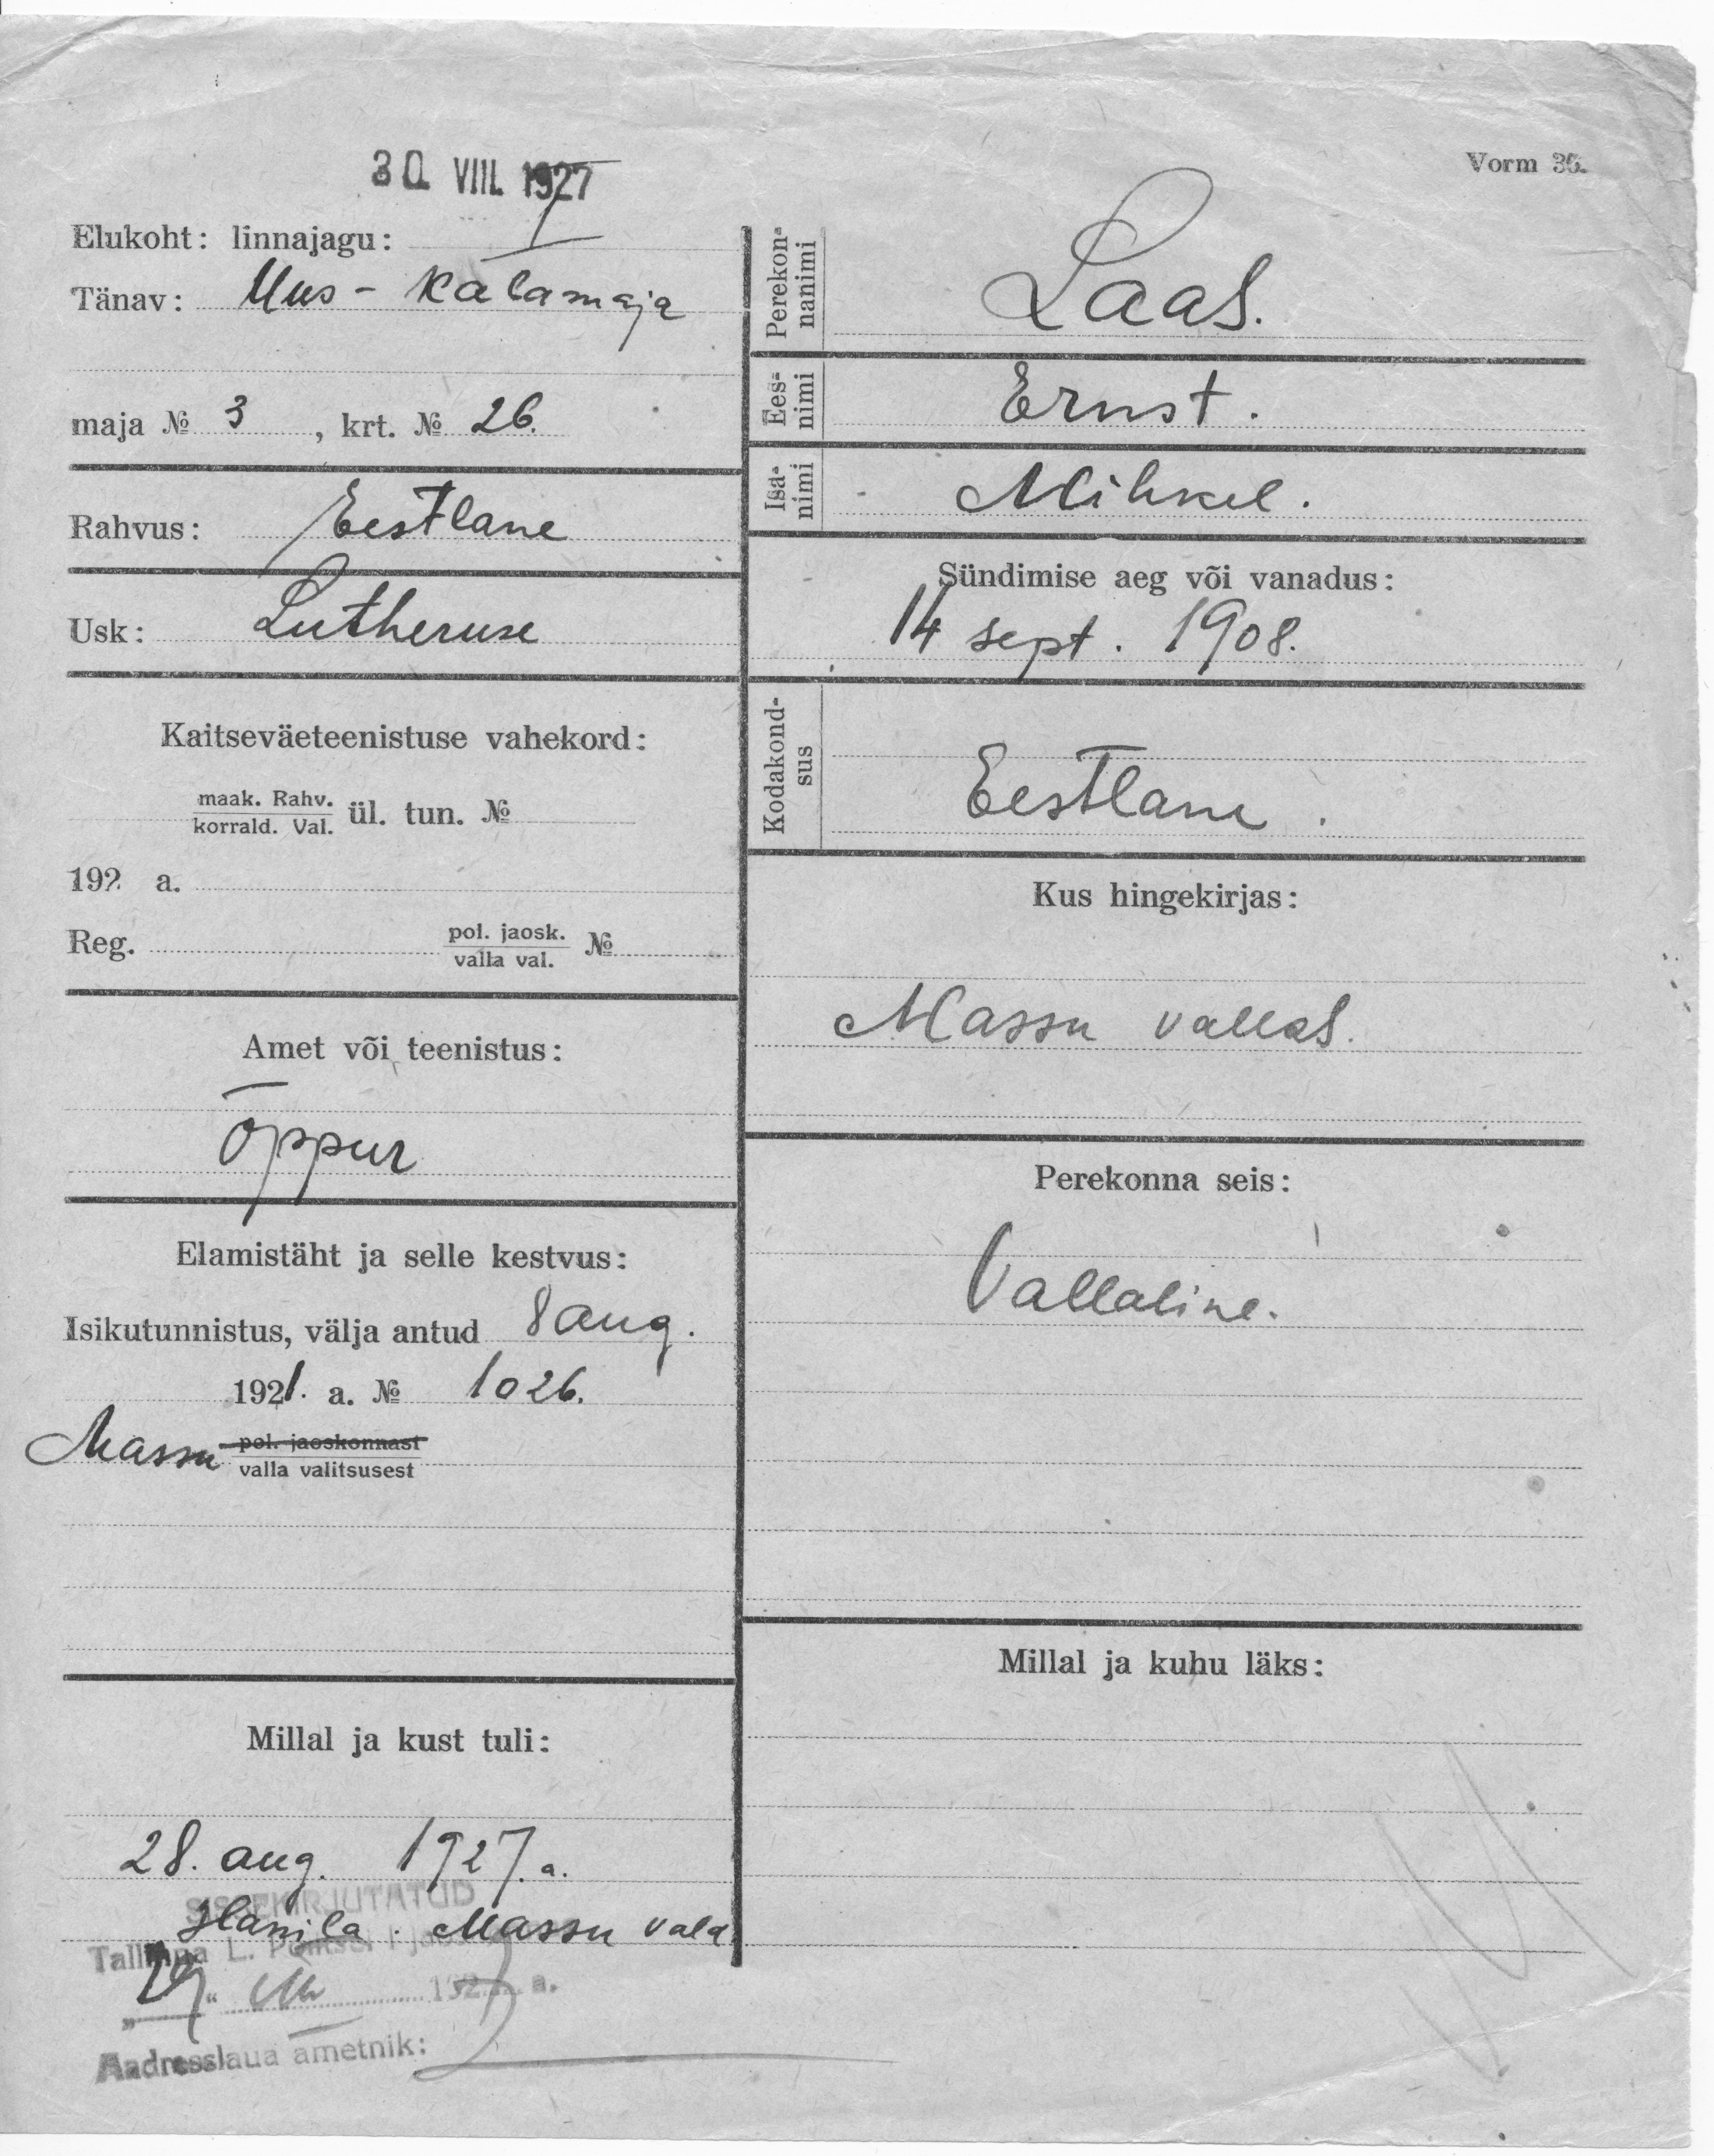 30 VIII. 1927
Vorm 36.
Elukoht: linnajagu: I
Tänav: Uus-Kalamaja
maja № 3, krt. № 26.
Rahvus: Eestlane
Usk: Lutheruse
Kaitseväeteenistuse vahekord:
maak. Rahv.
korrald. Val. ül. tun. №
192 a.
Reg. pol. jaosk. №
valla val.
Amet või teenistus:
õppur
Elamistäht ja selle kestvus:
Isikutunnistus, välja antud 8 aug.
1921. a. № 1026.
Massu pol. jaoskonnast
valla valitsusest
Millal ja kust tuli:
28. aug. 1927. a.
Hanila. Massu vald
SISSEKIRJUTATUD
Tallinna L. Politsei I
29 " VIII 1927 a.
Aadresslaua ametnik:
Perekon-
nanimi
Laas.
Ees-
nimi
Ernst.
Isa-
nimi
Mihkel.
Sündimise aeg või vanadus:
14 sept. 1908.
Kodakond-
sus
Eestlane.
Kus hingekirjas:
Massu vallas.
Perekonna seis:
Vallaline.
Millal ja kuhu läks: